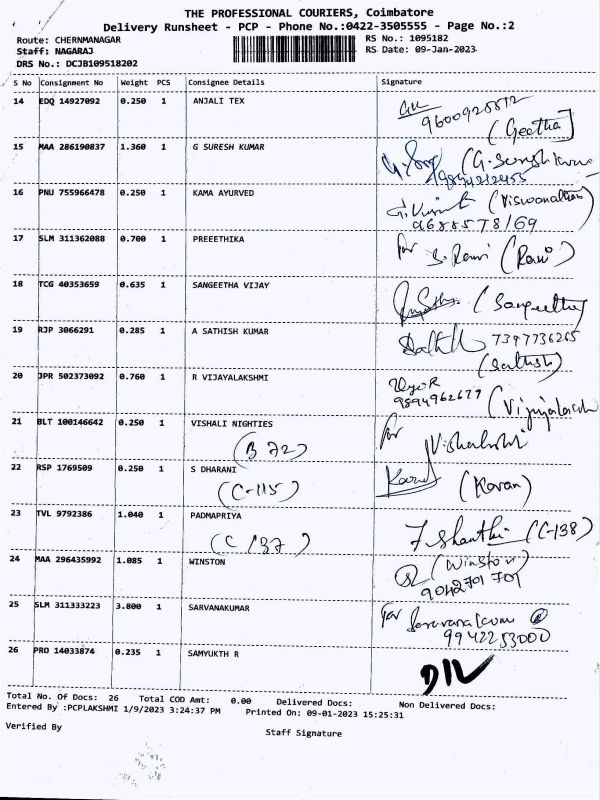 THE PROFESSIONAL COURIERS, Coimbatore
Delivery Runsheet - PCP - Phone No.:0422-3505555 - Page No.:2
Route: CHERNMANAGAR RS No.: 1095182
Staff: NAGARAJ RS Date: 09-Jan-2023
DRS No.: DCJB109518202
S No Consignment No Weight PCS Consignee Details Signature
14 EDQ 14927092 0.250 1 ANJALI TEX
(Geetha)
15 MAA 286190837 1.360 1 G SURESH KUMAR
16 PNU 755966478 0.250 1 KAMA AYURVED
(Viswanathan)
17 SLM 311362088 0.700 1 PREEETHIKA for S. Ravi (Ravi)
18 TCG 40353659 0.635 1 SANGEETHA VIJAY (Sangeetha)
19 RJP 3066291 0.285 1 A SATHISH KUMAR 7397736265
(Sathish)
20 JPR 502373092 0.760 1 R VIJAYALAKSHMI
9894962677
21 BLT 100146642 0.250 1 VISHALI NIGHTIES for
(B 72)
22 RSP 1769509 0.250 1 S DHARANI Karan (Karan)
(C-115)
23 TVL 9792386 1.040 1 PADMAPRIYA
(C 137) F. Shanthi (C-138)
24 MAA 296435992 1.085 1 WINSTON (Winston)
9042701701
25 SLM 311333223 3.800 1 SARVANAKUMAR for
9942253000
26 PRO 14033874 0.235 1 SAMYUKTH R
DIL
Total No. Of Docs: 26 Total COD Amt: 0.00 Delivered Docs: Non Delivered Docs:
Entered By :PCPLAKSHMI 1/9/2023 3:24:37 PM Printed On: 09-01-2023 15:25:31
Verified By Staff Signature